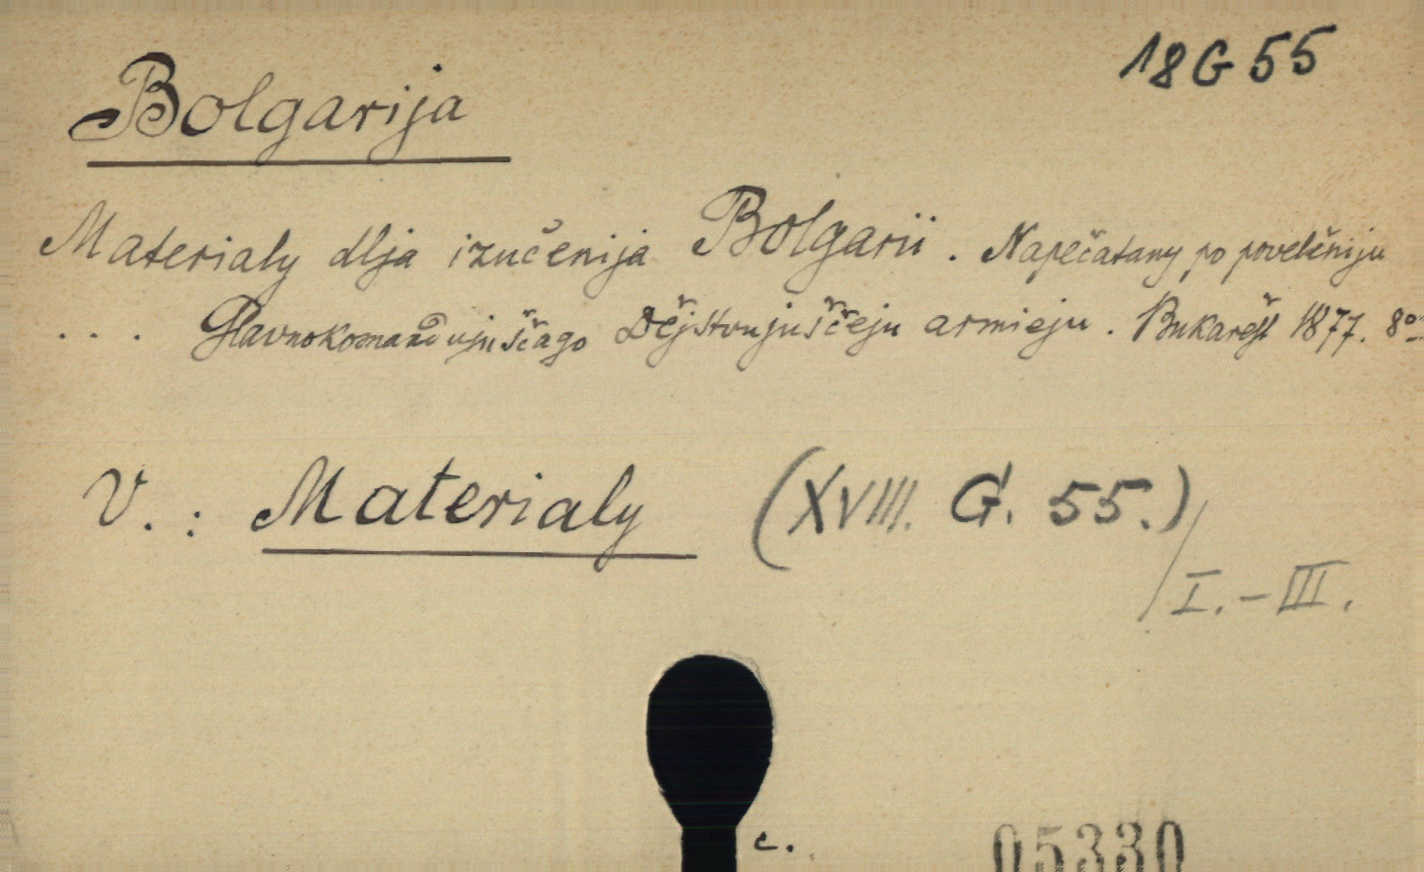 18 G 55
Bolgarija
Materialy dlja izučenija Bolgarii. Napečatany po povelěniju
.... Glavnokomandujuščago Dějstvujuščeju armieju. Bukarešt 1877. 8o
V.: Materialy (XVIII. G. 55.)
/I.-III.
c.
05330